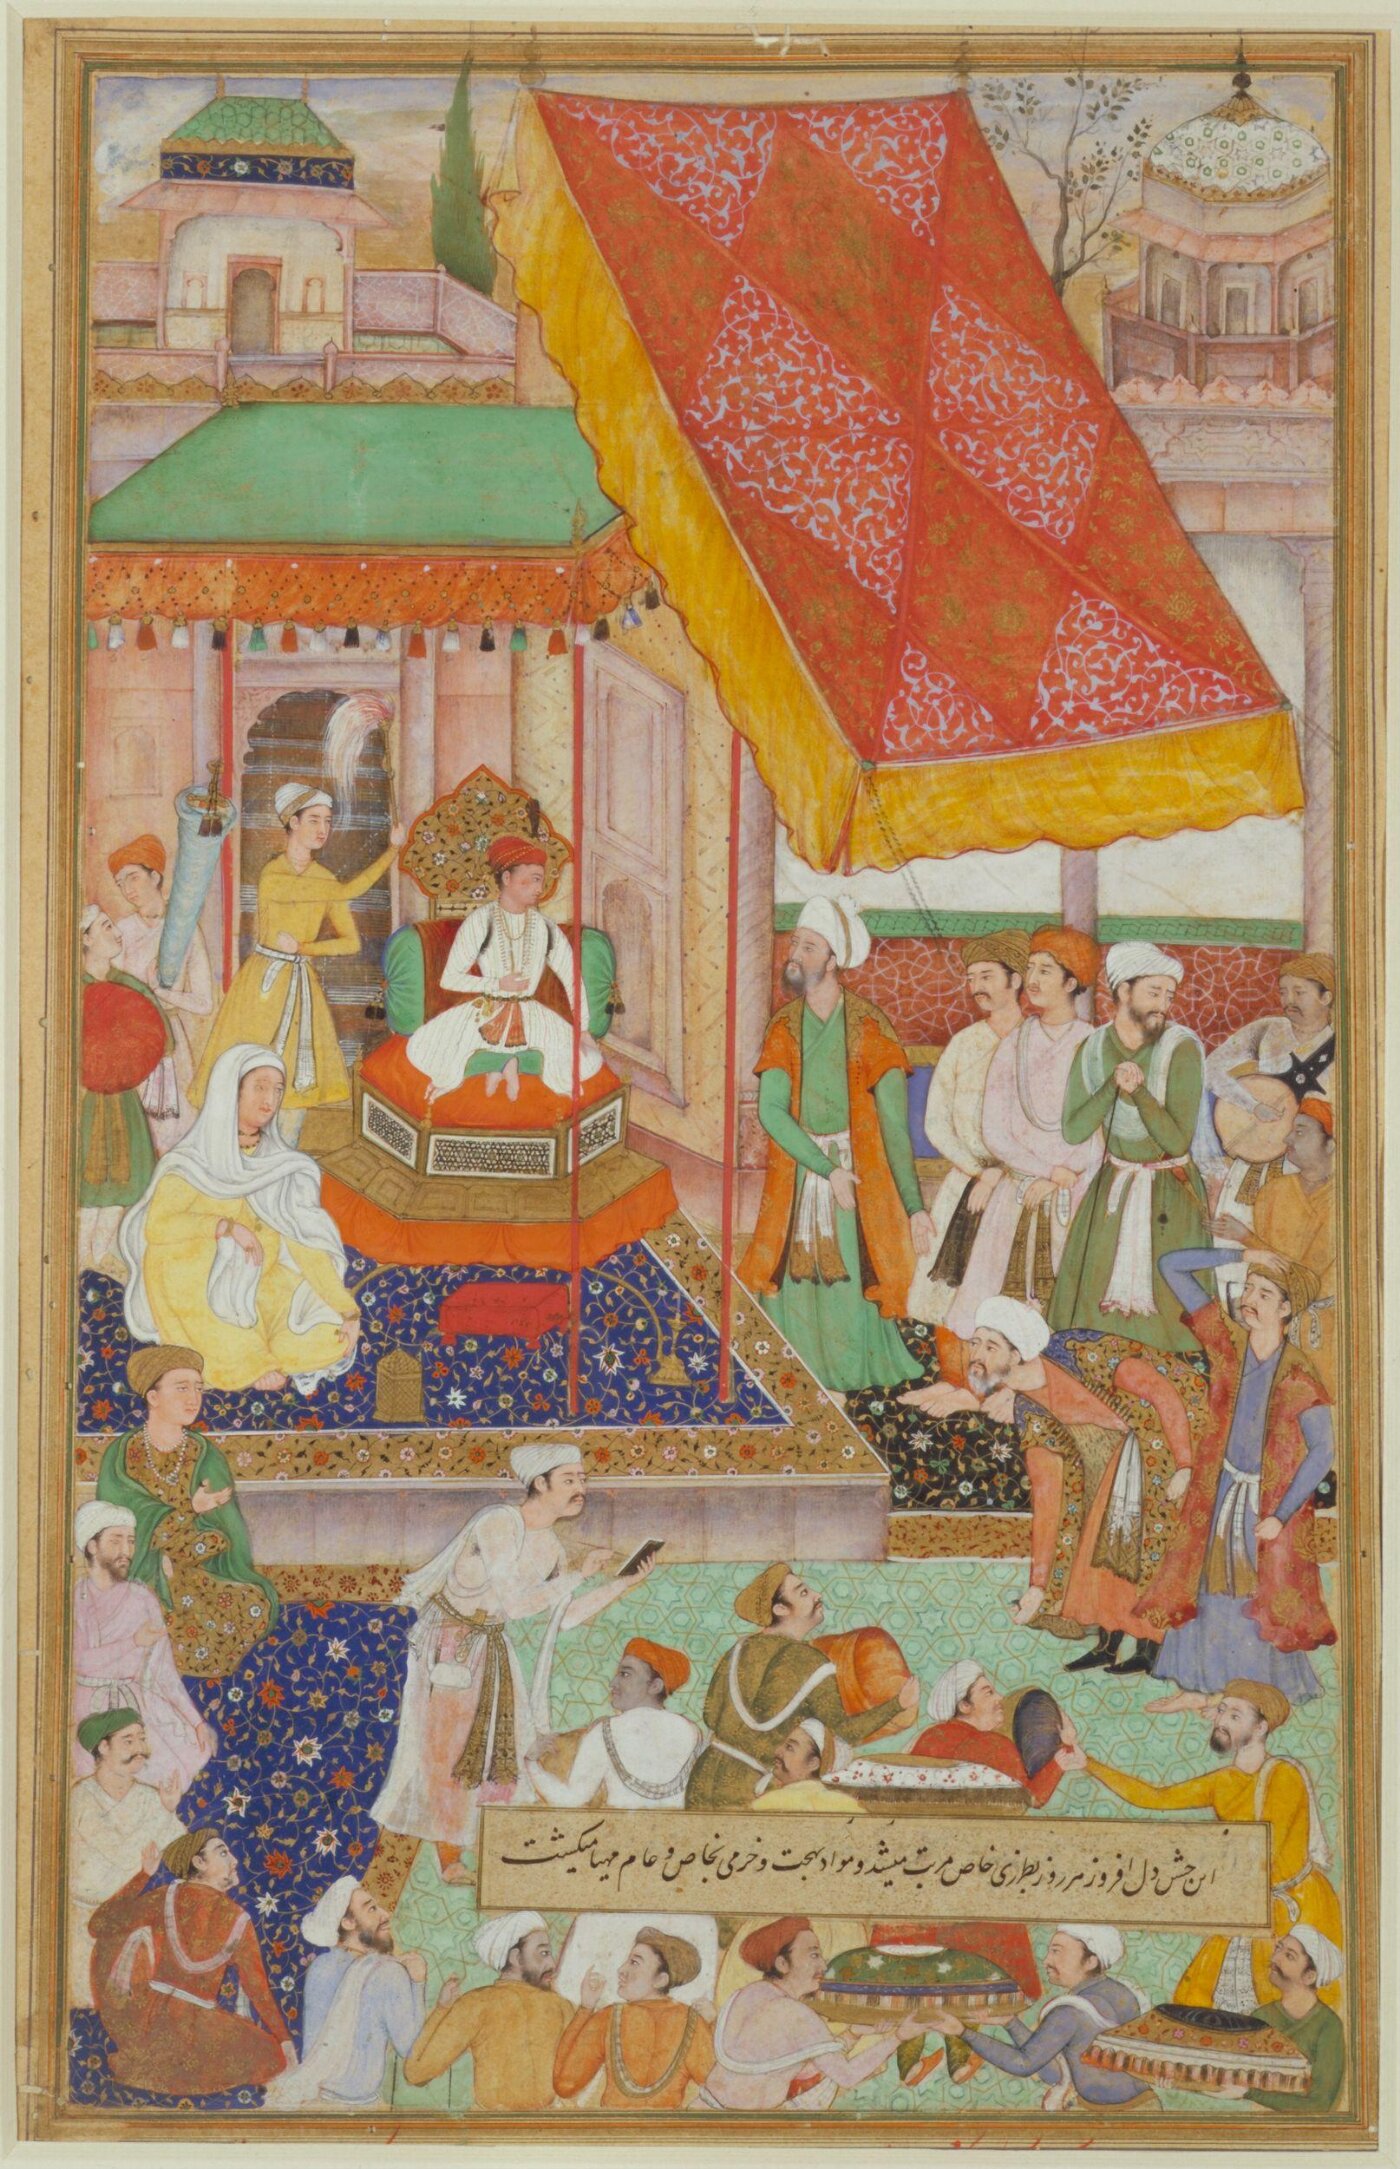 این جشن دل افروز هر روز بطرزی خاص مرتب میشد و مواد بهجت و خرمی بخاص و عام مهیا میگشت